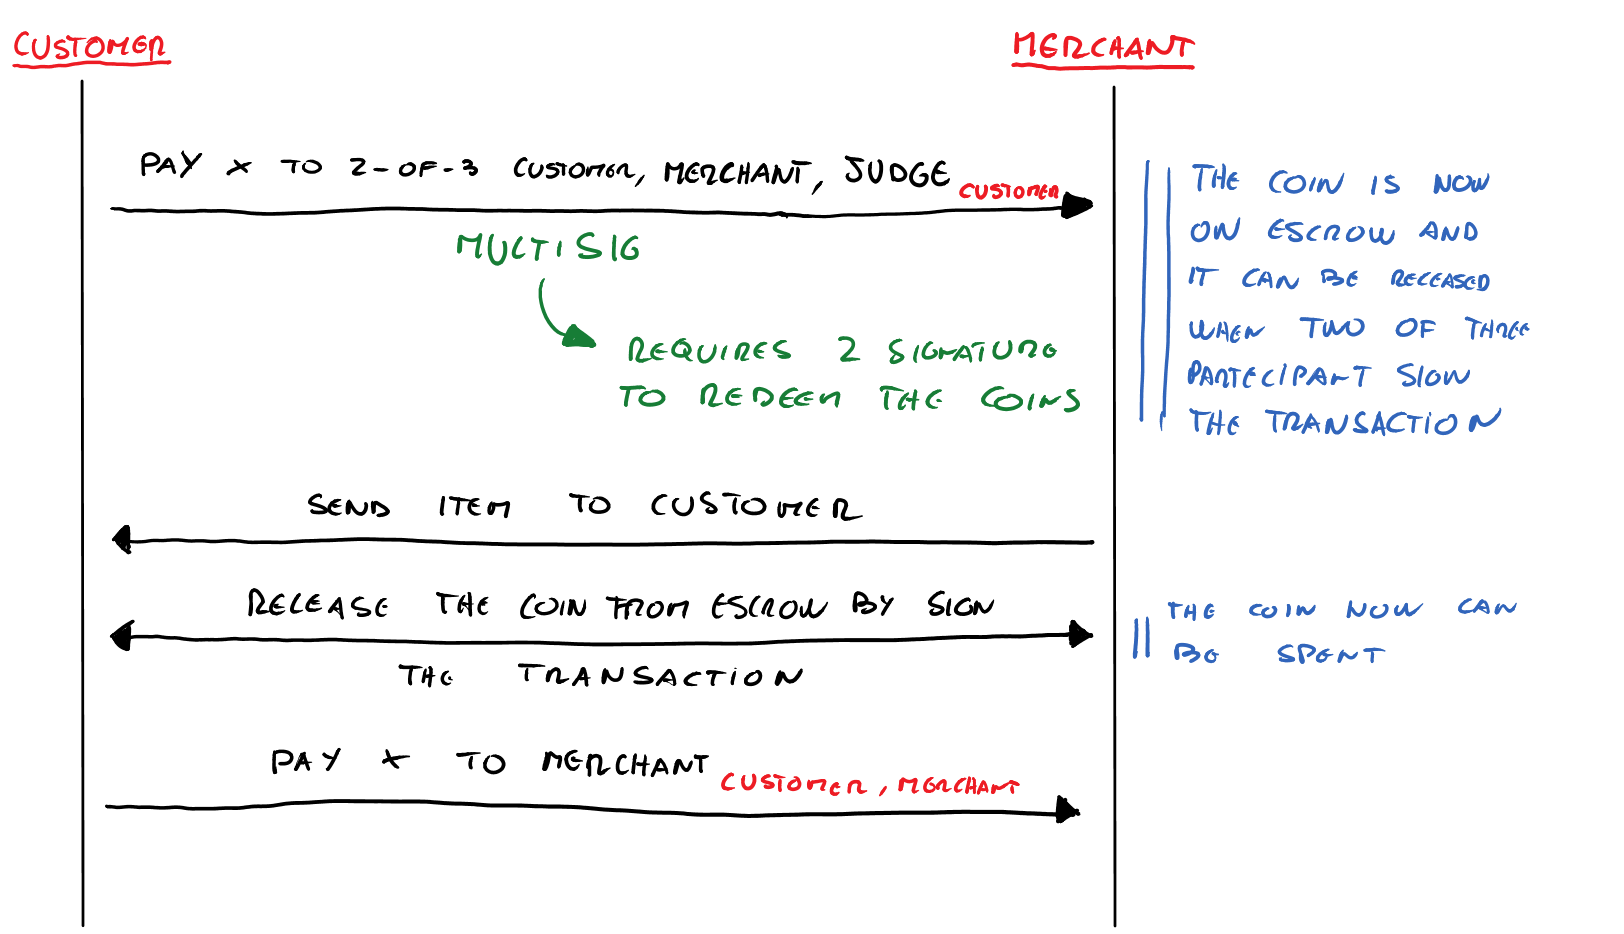 CUSTOMER
MERCHANT
PAY X TO 2-OF-3 CUSTOMER, MERCHANT, JUDGE CUSTOMER
MULTISIG
REQUIRES 2 SIGNATURE
TO REDEEM THE COINS
THE COIN IS NOW
ON ESCROW AND
IT CAN BE RELEASED
WHEN TWO OF THREE
PARTECIPANT SIGN
THE TRANSACTION
SEND ITEM TO CUSTOMER
RELEASE THE COIN FROM ESCROW BY SIGN
THE TRANSACTION
THE COIN NOW CAN
BE SPENT
PAY X TO MERCHANT CUSTOMER, MERCHANT